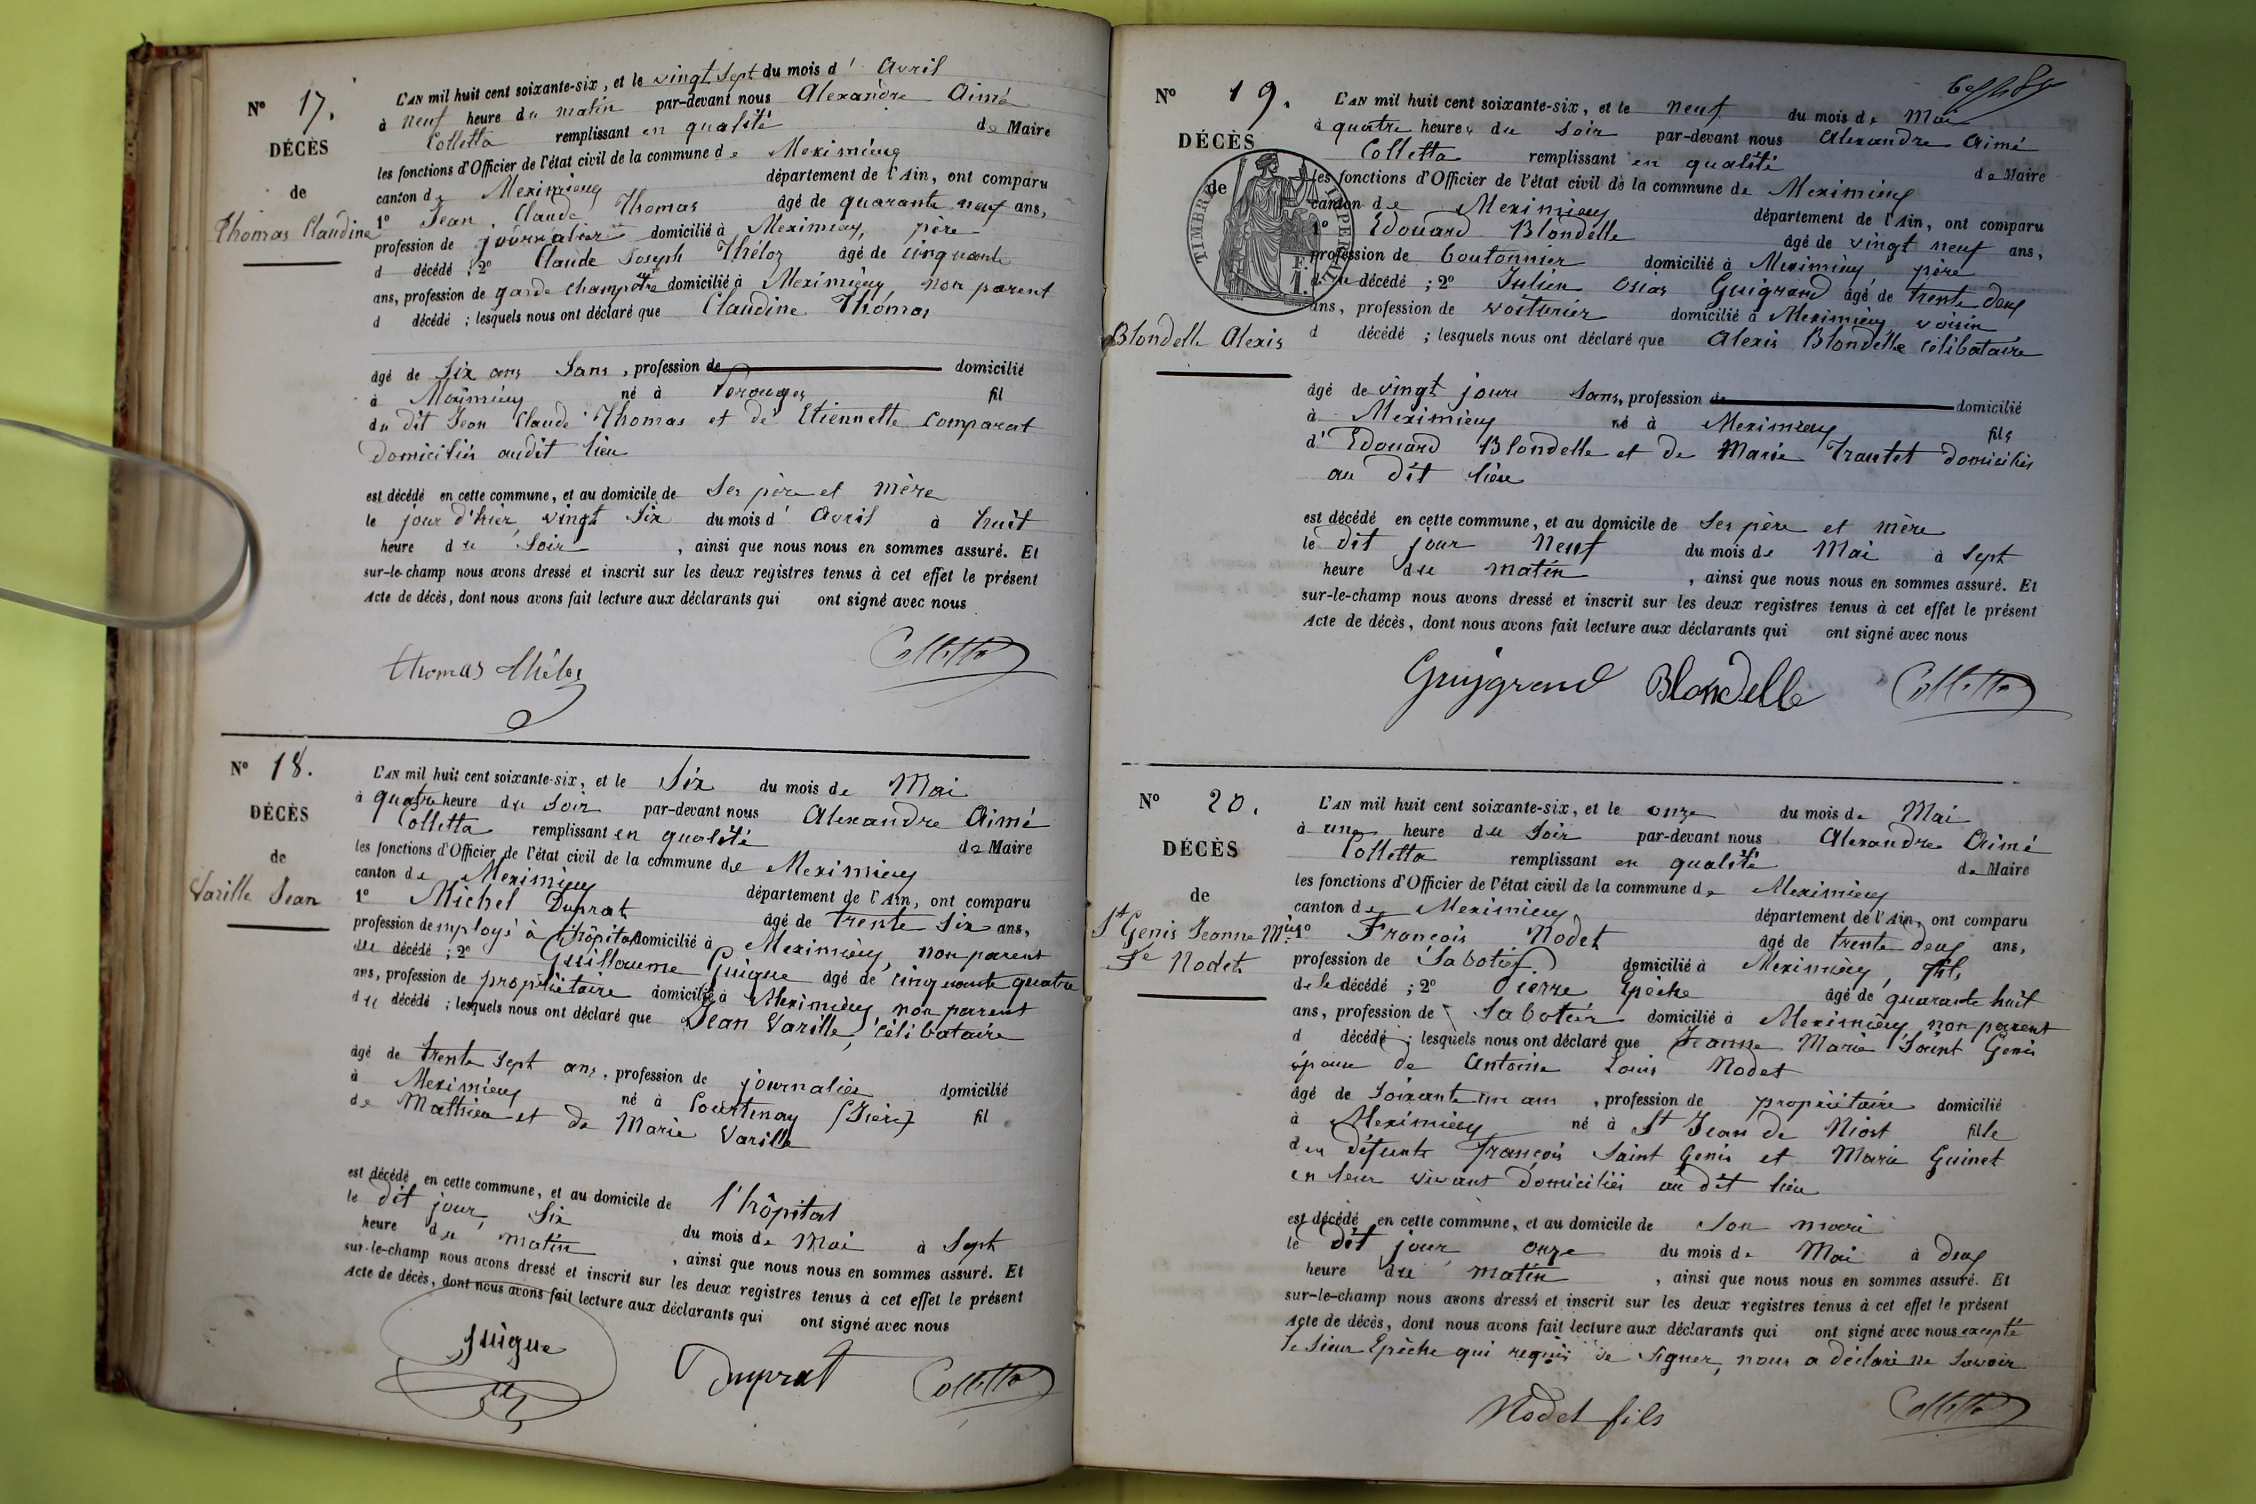 N° 17.
DÉCÈS
de
Thomas Claudine
L'AN mil huit cent soixante-six, et le vingt sept du mois d' Avril
à neuf heure du matin par-devant nous Alexandre Aimé
Colletta remplissant en qualité de Maire
les fonctions d'Officier de l'état civil de la commune de Meximieux
canton de Meximieux département de l'Ain, ont comparu
1° Jean Claude Thomas âgé de quarante neuf ans,
profession de journalier domicilié à Meximieux, père
d décédé ; 2° Claude Joseph Théloz âgé de cinquante
ans, profession de garde champêtre domicilié à Meximieux non parent
d décédé ; lesquels nous ont déclaré que Claudine Thomas
âgé de six ans Sans, profession de domicilié
à Meximieux né à Perouges fil
du dit Jean Claude Thomas et de Etiennette Comparat
domiciliés audit lieu
est décédé en cette commune, et au domicile de Ses père et mère
le jour d'hier, vingt Six du mois d' Avril à huit
heure du Soir , ainsi que nous nous en sommes assuré. Et
sur-le-champ nous avons dressé et inscrit sur les deux registres tenus à cet effet le présent
Acte de décès, dont nous avons fait lecture aux déclarants qui ont signé avec nous
Thomas Théloz Colletta
N° 18.
DÉCÈS
de
Varille Jean
L'AN mil huit cent soixante-six, et le Six du mois de Mai
à quatre heure du Soir par-devant nous Alexandre Aimé
Colletta remplissant en qualité de Maire
les fonctions d'Officier de l'état civil de la commune de Meximieux
canton de Meximieux département de l'Ain, ont comparu
1° Michel Duprat âgé de trente Six ans,
profession d'employé à l'hôpital domicilié à Meximieux, non parent
du décédé ; 2° Guillaume Guigue âgé de cinquante quatre
ans, profession de propriétaire domicilié à Meximieux, non parent
du décédé ; lesquels nous ont déclaré que Jean Varille, célibataire
âgé de trente sept ans, profession de journalier domicilié
à Meximieux né à Courtenay (Isère) fil
de Mathieu et de Marie Varille
est décédé en cette commune, et au domicile de l'hôpital
le dit jour, Six du mois de Mai à Sept
heure du matin , ainsi que nous nous en sommes assuré. Et
sur-le-champ nous avons dressé et inscrit sur les deux registres tenus à cet effet le présent
Acte de décès, dont nous avons fait lecture aux déclarants qui ont signé avec nous
Guigue Duprat Colletta
N° 19.
DÉCÈS
de
TIMBRE IMPERIAL
F.
1.
Blondelle Alexis
L'AN mil huit cent soixante-six, et le neuf du mois de Mai
à quatre heures du Soir par-devant nous Alexandre Aimé
Colletta remplissant en qualité de Maire
les fonctions d'Officier de l'état civil de la commune de Meximieux
canton de Meximieux département de l'Ain, ont comparu
1° Edouard Blondelle âgé de vingt neuf ans,
profession de boutonnier domicilié à Meximieux père
du décédé ; 2° Julien Osias Guigrand âgé de trente deux
ans, profession de voiturier domicilié à Meximieux voisin
d décédé ; lesquels nous ont déclaré que Alexis Blondelle célibataire
âgé de vingt jours Sans, profession de domicilié
à Meximieux né à Meximieux fils
d' Edouard Blondelle et de Marie Trautet domiciliés
au dit lieu
est décédé en cette commune, et au domicile de Ses père et mère
le dit jour Neuf du mois de Mai à Sept
heure du matin , ainsi que nous nous en sommes assuré. Et
sur-le-champ nous avons dressé et inscrit sur les deux registres tenus à cet effet le présent
Acte de décès, dont nous avons fait lecture aux déclarants qui ont signé avec nous
Guigrand Blondelle Colletta
N° 20.
DÉCÈS
de
St Genis Jeanne Mie
fe Nodet
L'AN mil huit cent soixante-six, et le onze du mois de Mai
à une heure du Soir par-devant nous Alexandre Aimé
Colletta remplissant en qualité de Maire
les fonctions d'Officier de l'état civil de la commune de Meximieux
canton de Meximieux département de l'Ain, ont comparu
1° François Nodet âgé de trente deux ans,
profession de Sabotier domicilié à Meximieux, fils
de la décédé ; 2° Pierre Epêche âgé de quarante huit
ans, profession de Sabotier domicilié à Meximieux non parent
d décédé ; lesquels nous ont déclaré que Jeanne Marie Saint Genis
épouse de Antoine Louis Nodet
âgé de soixante un ans , profession de propriétaire domicilié
à Meximieux né à St Jean de Niost fille
des défunts François Saint Genis et Marie Guinet
en leur vivant domiciliés au dit lieu
est décédé en cette commune, et au domicile de Son mari
le dit jour onze du mois de Mai à deux
heure du matin , ainsi que nous nous en sommes assuré. Et
sur-le-champ nous avons dressé et inscrit sur les deux registres tenus à cet effet le présent
Acte de décès, dont nous avons fait lecture aux déclarants qui ont signé avec nous excepté
le Sieur Epêche qui requis de signer, nous a déclaré ne Savoir
Nodet fils Colletta